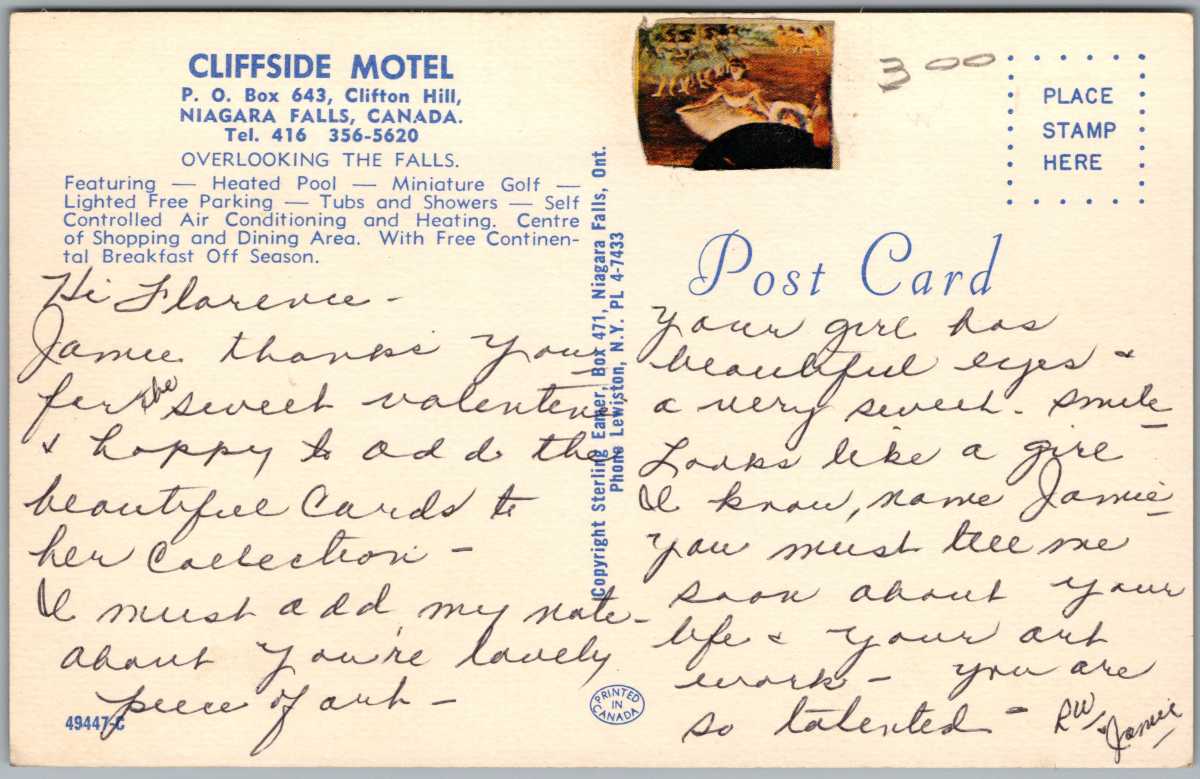 CLIFFSIDE MOTEL
P. O. Box 643, Clifton Hill,
NIAGARA FALLS, CANADA.
Tel. 416 356-5620
OVERLOOKING THE FALLS.
Featuring — Heated Pool — Miniature Golf —
Lighted Free Parking — Tubs and Showers — Self
Controlled Air Conditioning and Heating. Centre
of Shopping and Dining Area. With Free Continen-
tal Breakfast Off Season.
Hi Florence -
Jamie thanks you
for the sweet valentine,
& happy to add the
beautiful Cards to
her Collection -
I must add my note-
about you're lovely
piece of art -
49447-C
©Copyright Sterling Eamer, Box 471, Niagara Falls, Ont.
Phone Lewiston, N.Y. PL 4-7433
PRINTED
IN
CANADA
3 00
PLACE
STAMP
HERE
Post Card
Your girl has
beautiful eyes &
a very sweet. smile
Looks like a girl
I know, name Jamie
You must tell me
soon about your
life & your art
work - you are
so talented -
RW
& Jamie